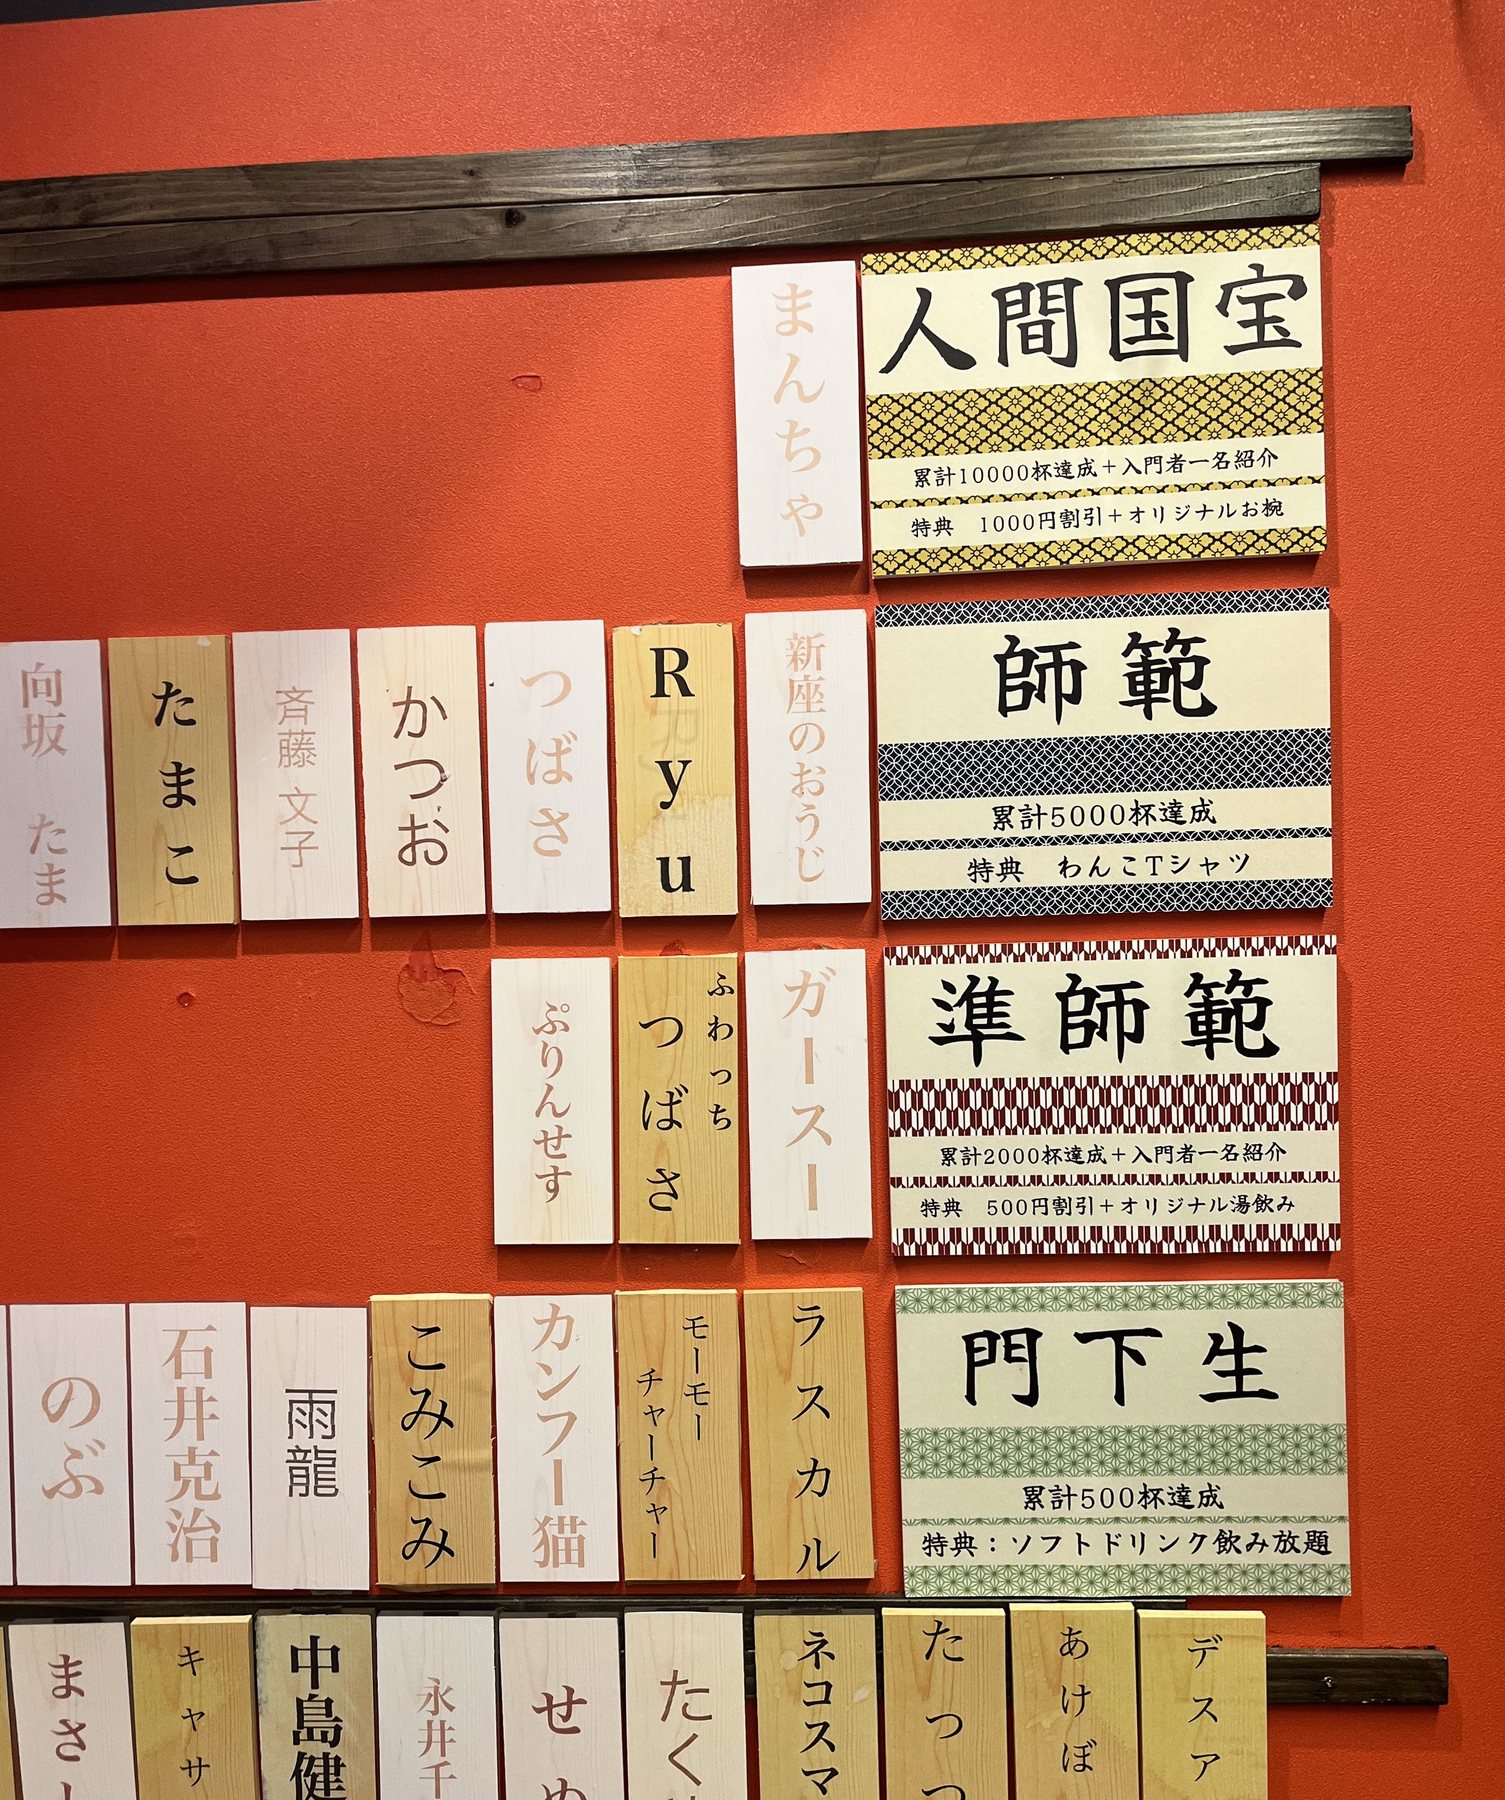 人間国宝
累計10000杯達成＋入門者一名紹介
特典　1000円割引＋オリジナルお椀
まんちゃ
師範
累計5000杯達成
特典　わんこTシャツ
新座のおうじ
Ryu
つばさ
かつお
斉藤 文子
たまこ
向坂 たま
準師範
累計2000杯達成＋入門者一名紹介
特典　500円割引＋オリジナル湯飲み
ガースー
ふわっち
つばさ
ぷりんせす
門下生
累計500杯達成
特典：ソフトドリンク飲み放題
ラスカル
モーモー
チャーチャー
カンフー猫
こみこみ
雨龍
石井克治
のぶ
デスア
あけぼ
たつつ
ネコスマ
たく
せ
永井千
中島健
キャサ
まさ